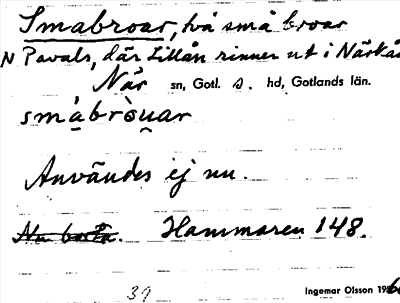 Smabroar, två små broar
N Pavals, där Lillån rinner ut i Närkån
När sn, Gotl. s. hd, Gotlands län.
småbròuar
Användes ej nu.
Nu borta. Hammaren 148.
39 Ingemar Olsson 196